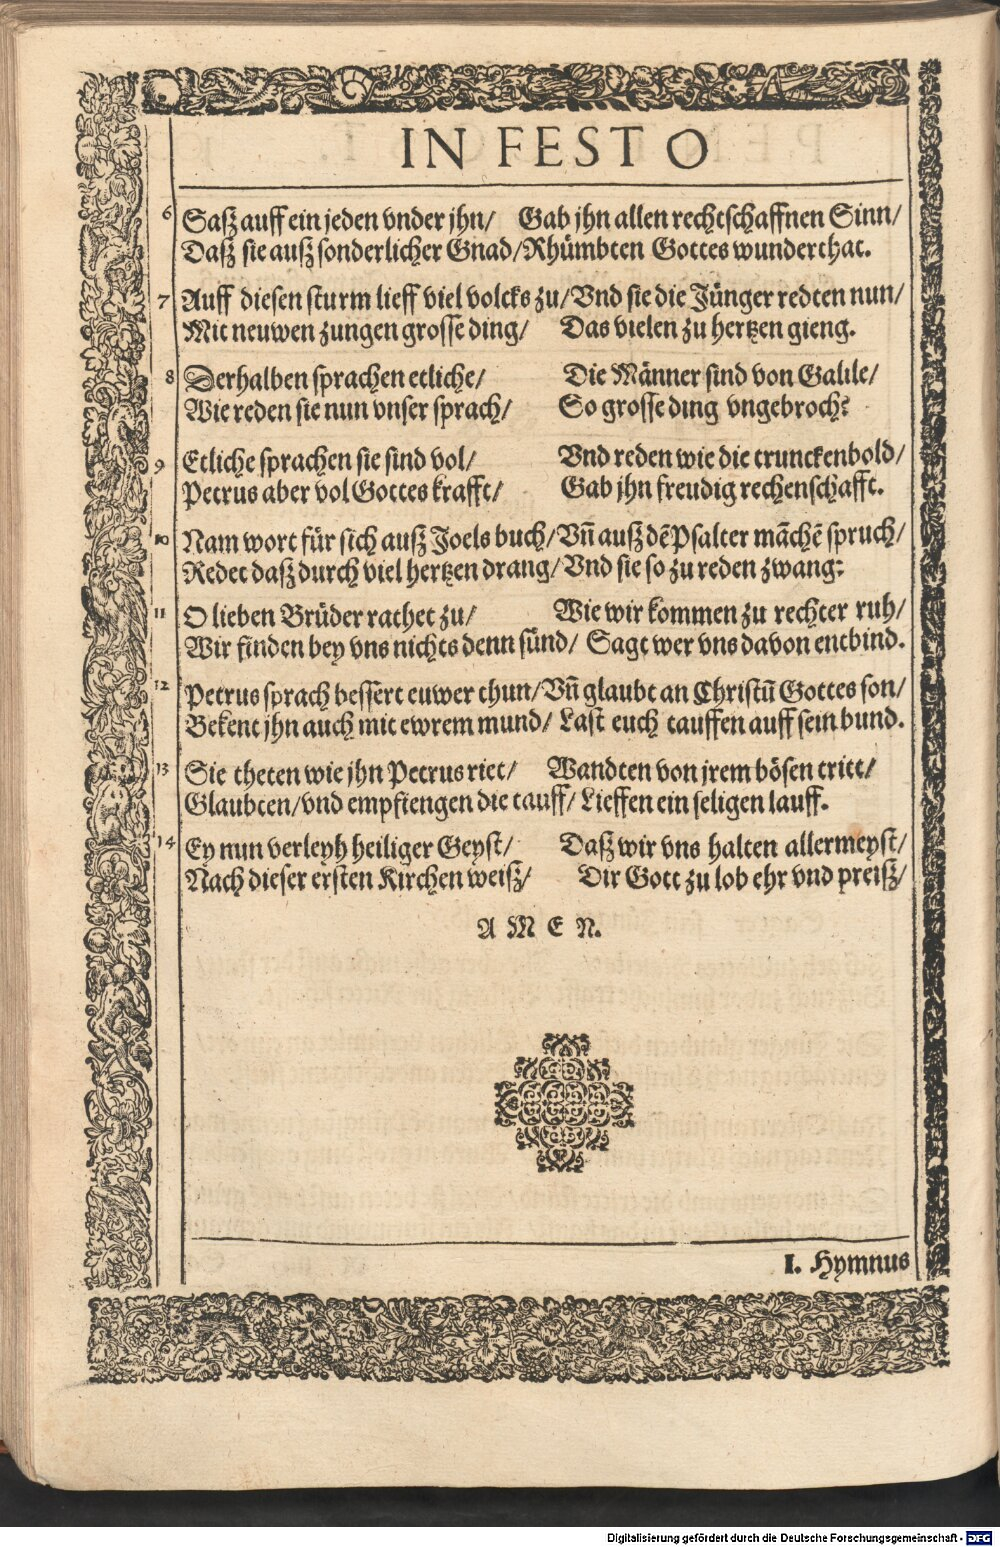 IN FESTO
6 Sasz auff ein jeden vnder jhn/ Gab jhn allen rechtschaffnen Sinn/
Dasz sie ausz sonderlicher Gnad/ Rhümbten Gottes wunderthat.
7 Auff diesen sturm lieff viel volcks zu/ Vnd sie die Jünger redten nun/
Mit neuwen zungen grosse ding/ Das vielen zu hertzen gieng.
8 Derhalben sprachen etliche/ Die Männer sind von Galile/
Wie reden sie nun vnser sprach/ So grosse ding vngebroch?
9 Etliche sprachen sie sind vol/ Vnd reden wie die trunckenbold/
Petrus aber vol Gottes krafft/ Gab jhn freudig rechenschafft.
10 Nam wort für sich ausz Joels buch/ Vñ ausz dẽ Psalter mãchẽ spruch/
Redet dasz durch viel hertzen drang/ Vnd sie so zu reden zwang:
11 O lieben Brüder rathet zu/ Wie wir kommen zu rechter ruh/
Wir finden bey vns nichts denn sünd/ Sagt wer vns davon entbind.
12 Petrus sprach bessert euwer thun/ Vñ glaubt an Christũ Gottes son/
Bekent jhn auch mit ewrem mund/ Last euch tauffen auff sein bund.
13 Sie theten wie jhn Petrus riet/ Wandten von jrem bösen tritt/
Glaubten/ vnd empfiengen die tauff/ Lieffen ein seligen lauff.
14 Ey nun verleyh heiliger Geyst/ Dasz wir vns halten allermeyst/
Nach dieser ersten Kirchen weisz/ Dir Gott zu lob ehr vnd preisz/
A M E N.
I. Hymnus
Digitalisierung gefördert durch die Deutsche Forschungsgemeinschaft - DFG